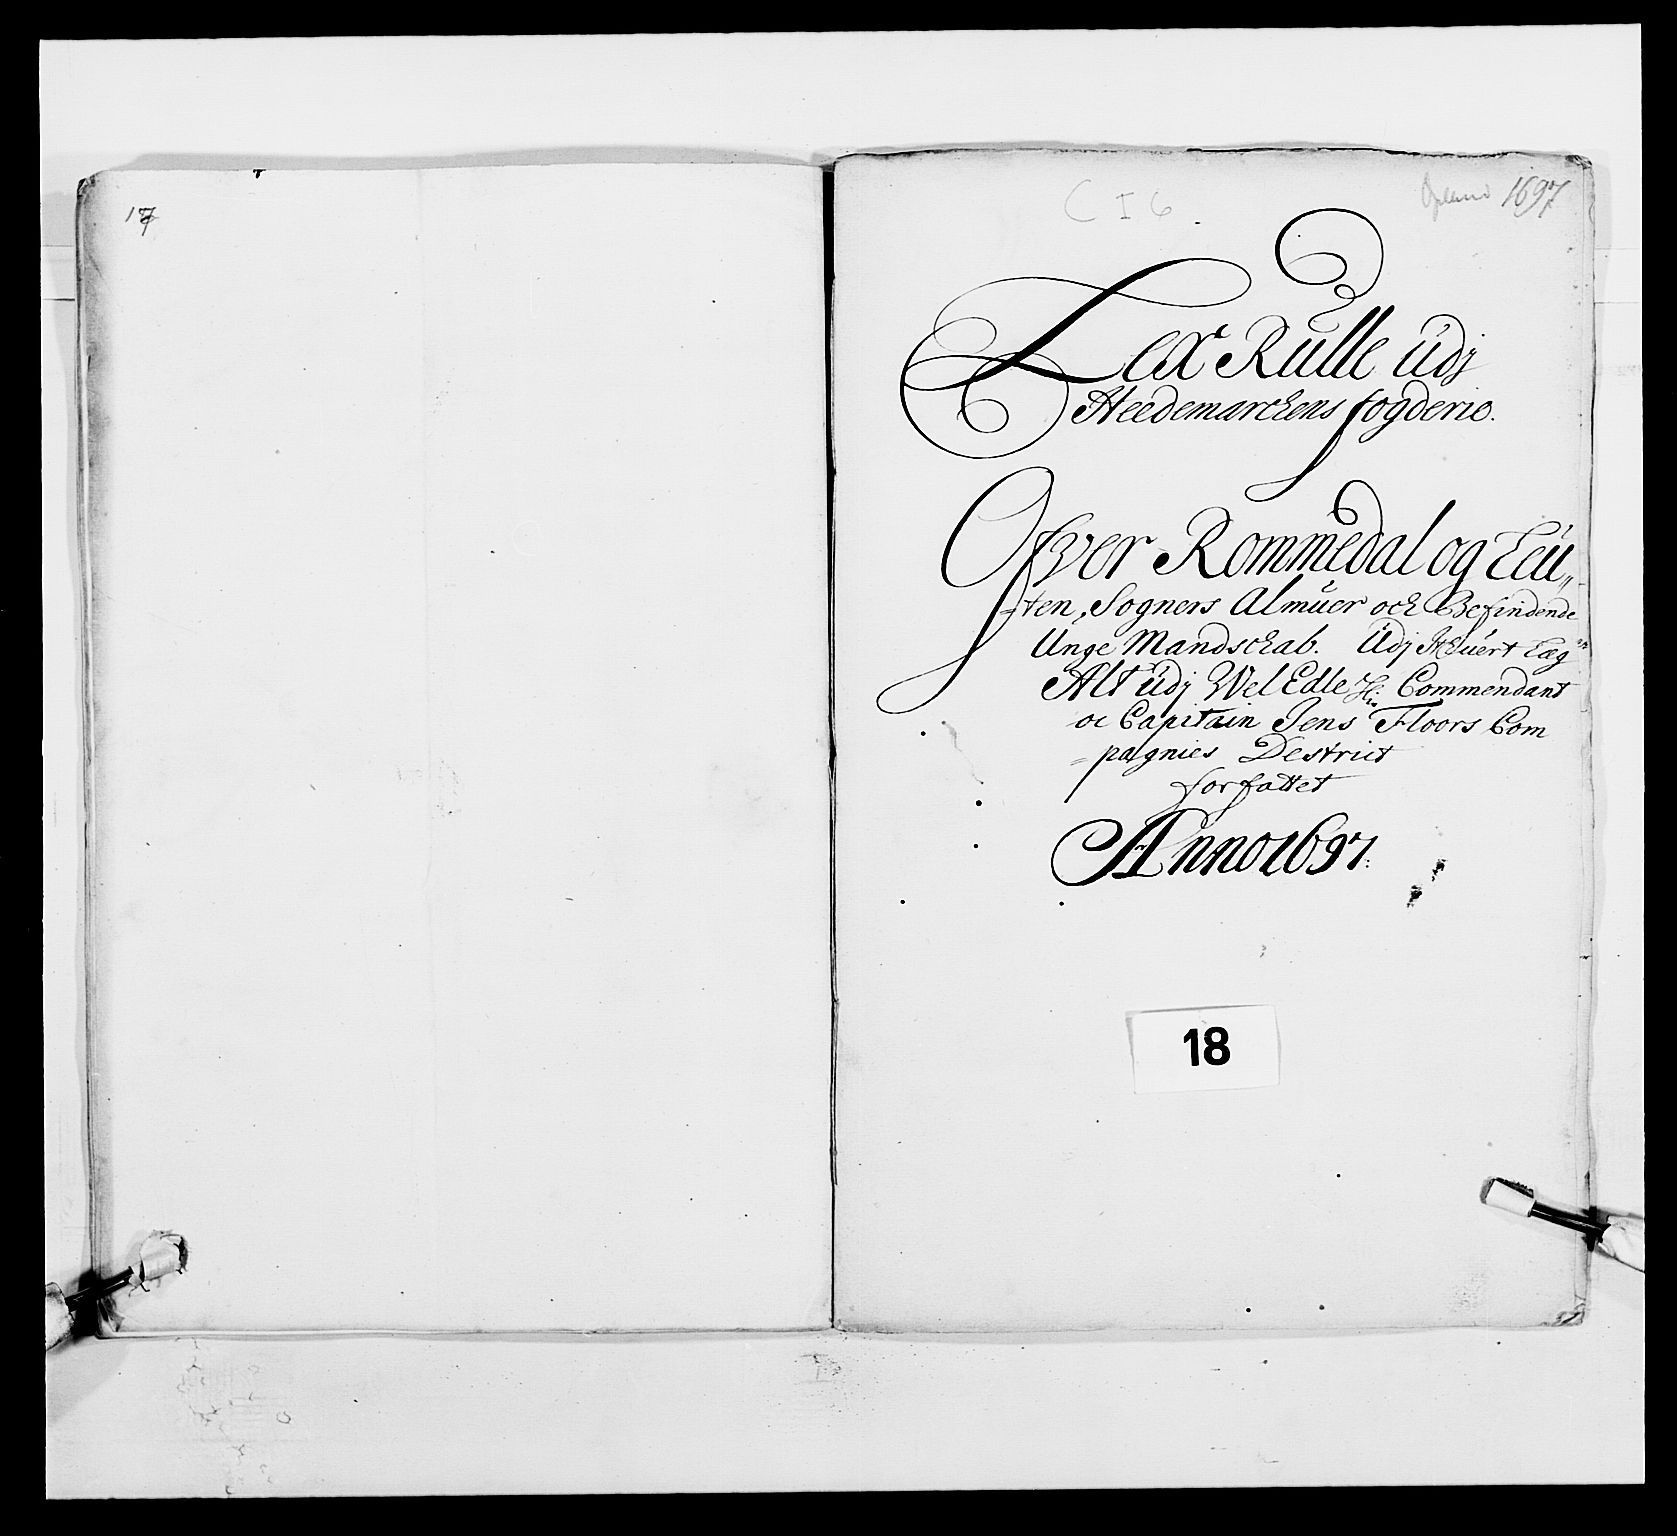 17
C I 6
Opland 1697
Lex Rulle udj
Heedemarckens fogderie.
Ofver Rommedal og Leu„
=ten, Sogners Almuer och Befindende
Unge Mandschab. Udj Hvert Læg
Alt udj Wel Edle Hr: Commendant
oc Capitain Jens Floors Com
=pagnies Destrict
forfattet
Anno 1697.
18